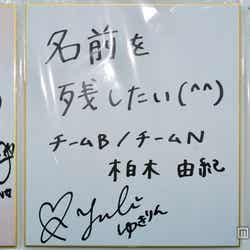 名前を
残したい(^^)
チームB/チームN
柏木 由紀
Yuki
ゆきりん